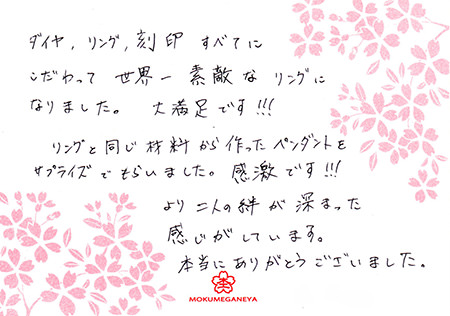 ダイヤ, リング, 刻印 すべてに
こだわって 世界一 素敵な リングに
なりました。 大満足です!!!
リングと同じ材料から作ったペンダントを
サプライズでもらいました。感激です!!!
より二人の絆が深まった
感じがしています。
本当にありがとうございました。
MOKUMEGANEYA